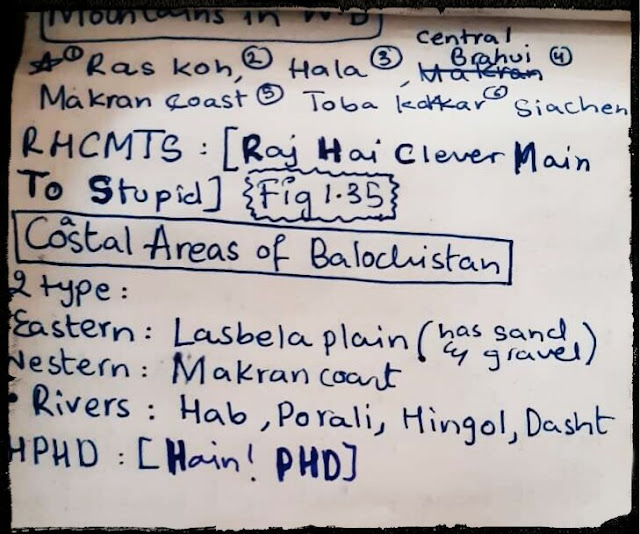 Mountains in W.B
① Ras Koh, ② Hala ③, Central Brahui ④
Makran
Makran coast ⑤ Toba Kakkar ⑥ Siachen
RHCMTS : [Raj Hai Clever Main
To Stupid] {Fig 1.35}
Coastal Areas of Balochistan
2 type :
Eastern : Lasbela plain (has sand & gravel)
Western : Makran coast
• Rivers : Hab, Porali, Hingol, Dasht
HPHD : [Hain! PHD]